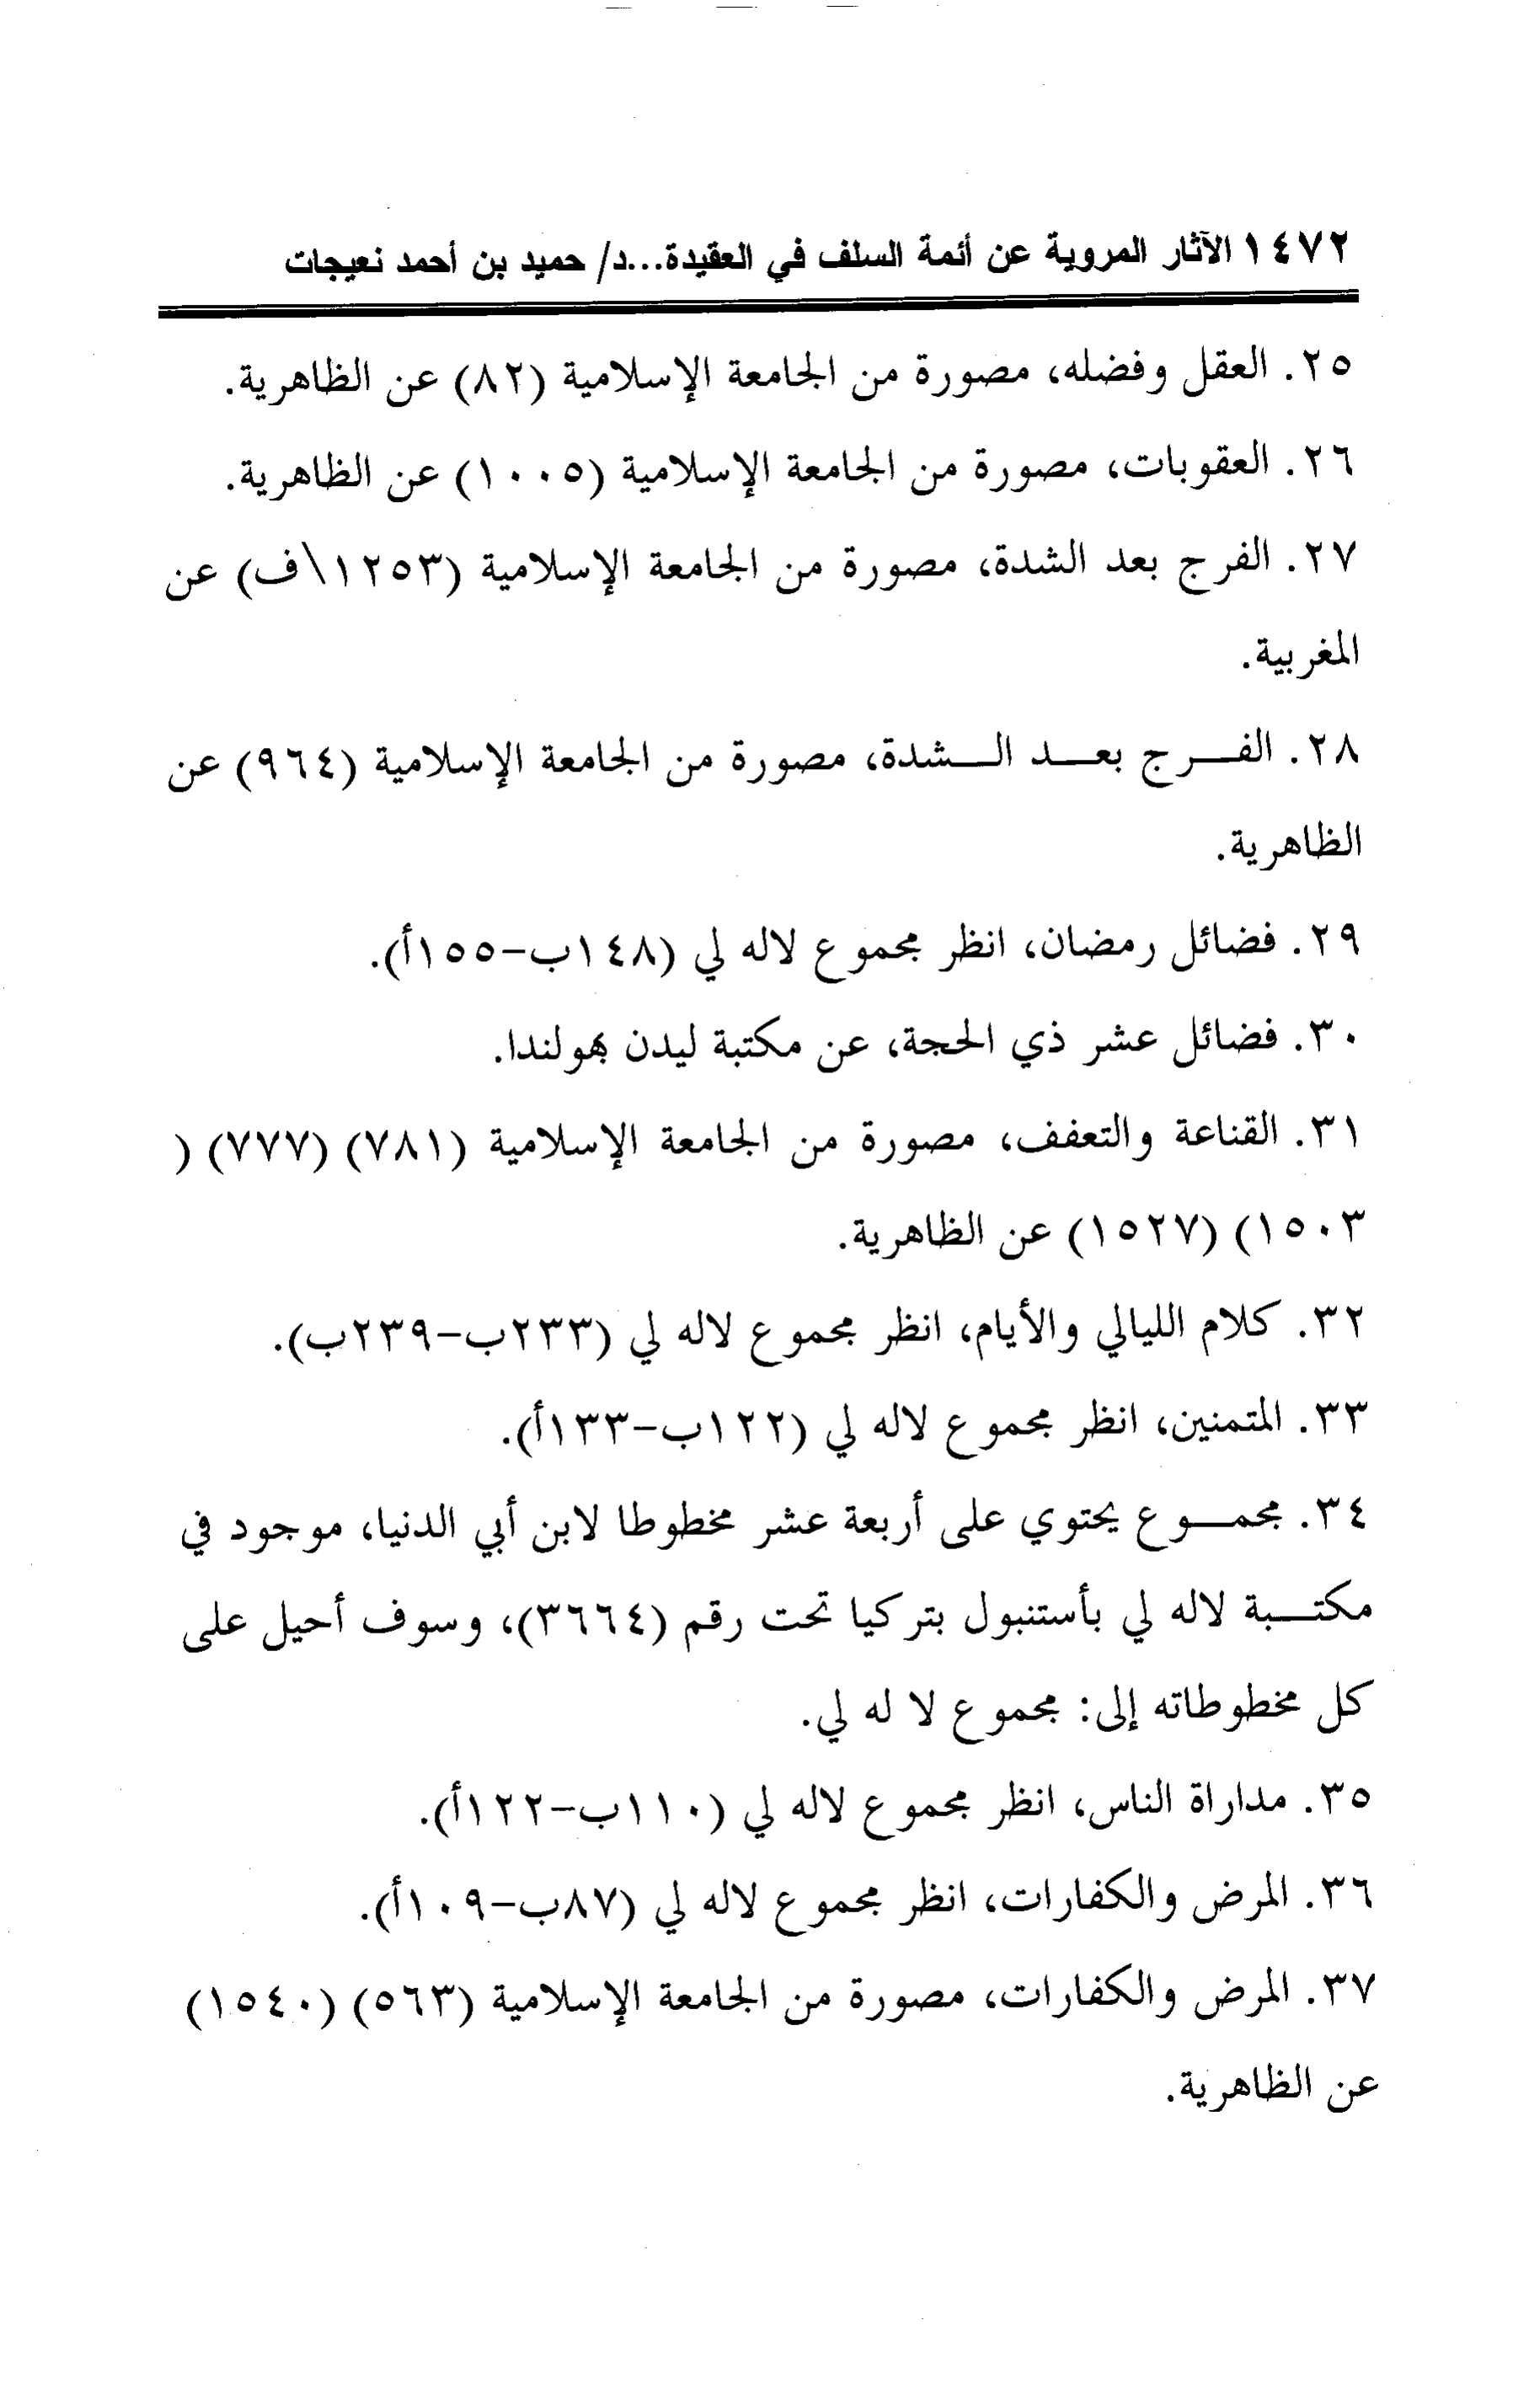 ١٤٧٢ الآثار المروية عن أئمة السلف في العقيدة...د/ حميد بن أحمد نعيجات
٢٥. العقل وفضله، مصورة من الجامعة الإسلامية (٨٢) عن الظاهرية.
٢٦. العقوبات، مصورة من الجامعة الإسلامية (١٠٠٥) عن الظاهرية.
٢٧. الفرج بعد الشدة، مصورة من الجامعة الإسلامية (١٢٥٣\ف) عن
المغربية.
٢٨. الفـــرج بعـــد الـــشدة، مصورة من الجامعة الإسلامية (٩٦٤) عن
الظاهرية.
٢٩. فضائل رمضان، انظر مجموع لاله لي (١٤٨ب-١٥٥أ).
٣٠. فضائل عشر ذي الحجة، عن مكتبة ليدن بهولندا.
٣١. القناعة والتعفف، مصورة من الجامعة الإسلامية (٧٨١) (٧٧٧) (
١٥٠٣) (١٥٢٧) عن الظاهرية.
٣٢. كلام الليالي والأيام، انظر مجموع لاله لي (٢٣٣ب-٢٣٩ب).
٣٣. المتمنين، انظر مجموع لاله لي (١٢٢ب-١٣٣أ).
٣٤. مجمـــوع يحتوي على أربعة عشر مخطوطا لابن أبي الدنيا، موجود في
مكتـــبة لاله لي بأستنبول بتركيا تحت رقم (٣٦٦٤)، وسوف أحيل على
كل مخطوطاته إلى: مجموع لا له لي.
٣٥. مداراة الناس، انظر مجموع لاله لي (١١٠ب-١٢٢أ).
٣٦. المرض والكفارات، انظر مجموع لاله لي (٨٧ب-١٠٩أ).
٣٧. المرض والكفارات، مصورة من الجامعة الإسلامية (٥٦٣) (١٥٤٠)
عن الظاهرية.